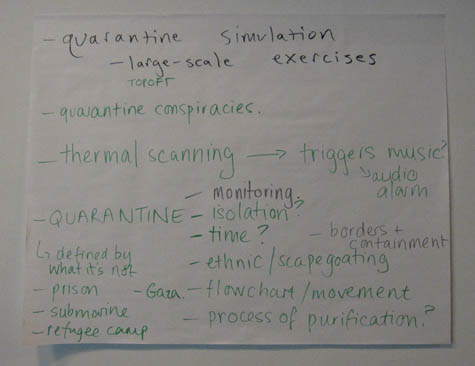 - quarantine simulation
- large-scale exercises
TOPOFF
- quarantine conspiracies.
- thermal scanning → triggers music?
↳ audio alarm
- QUARANTINE
↳ defined by
what it's not
- prison
- submarine
- refugee camp
- Gaza.
- monitoring.
- isolation?
- time?
- ethnic/scapegoating
- flowchart/movement
- process of purification.?
- borders +
containment